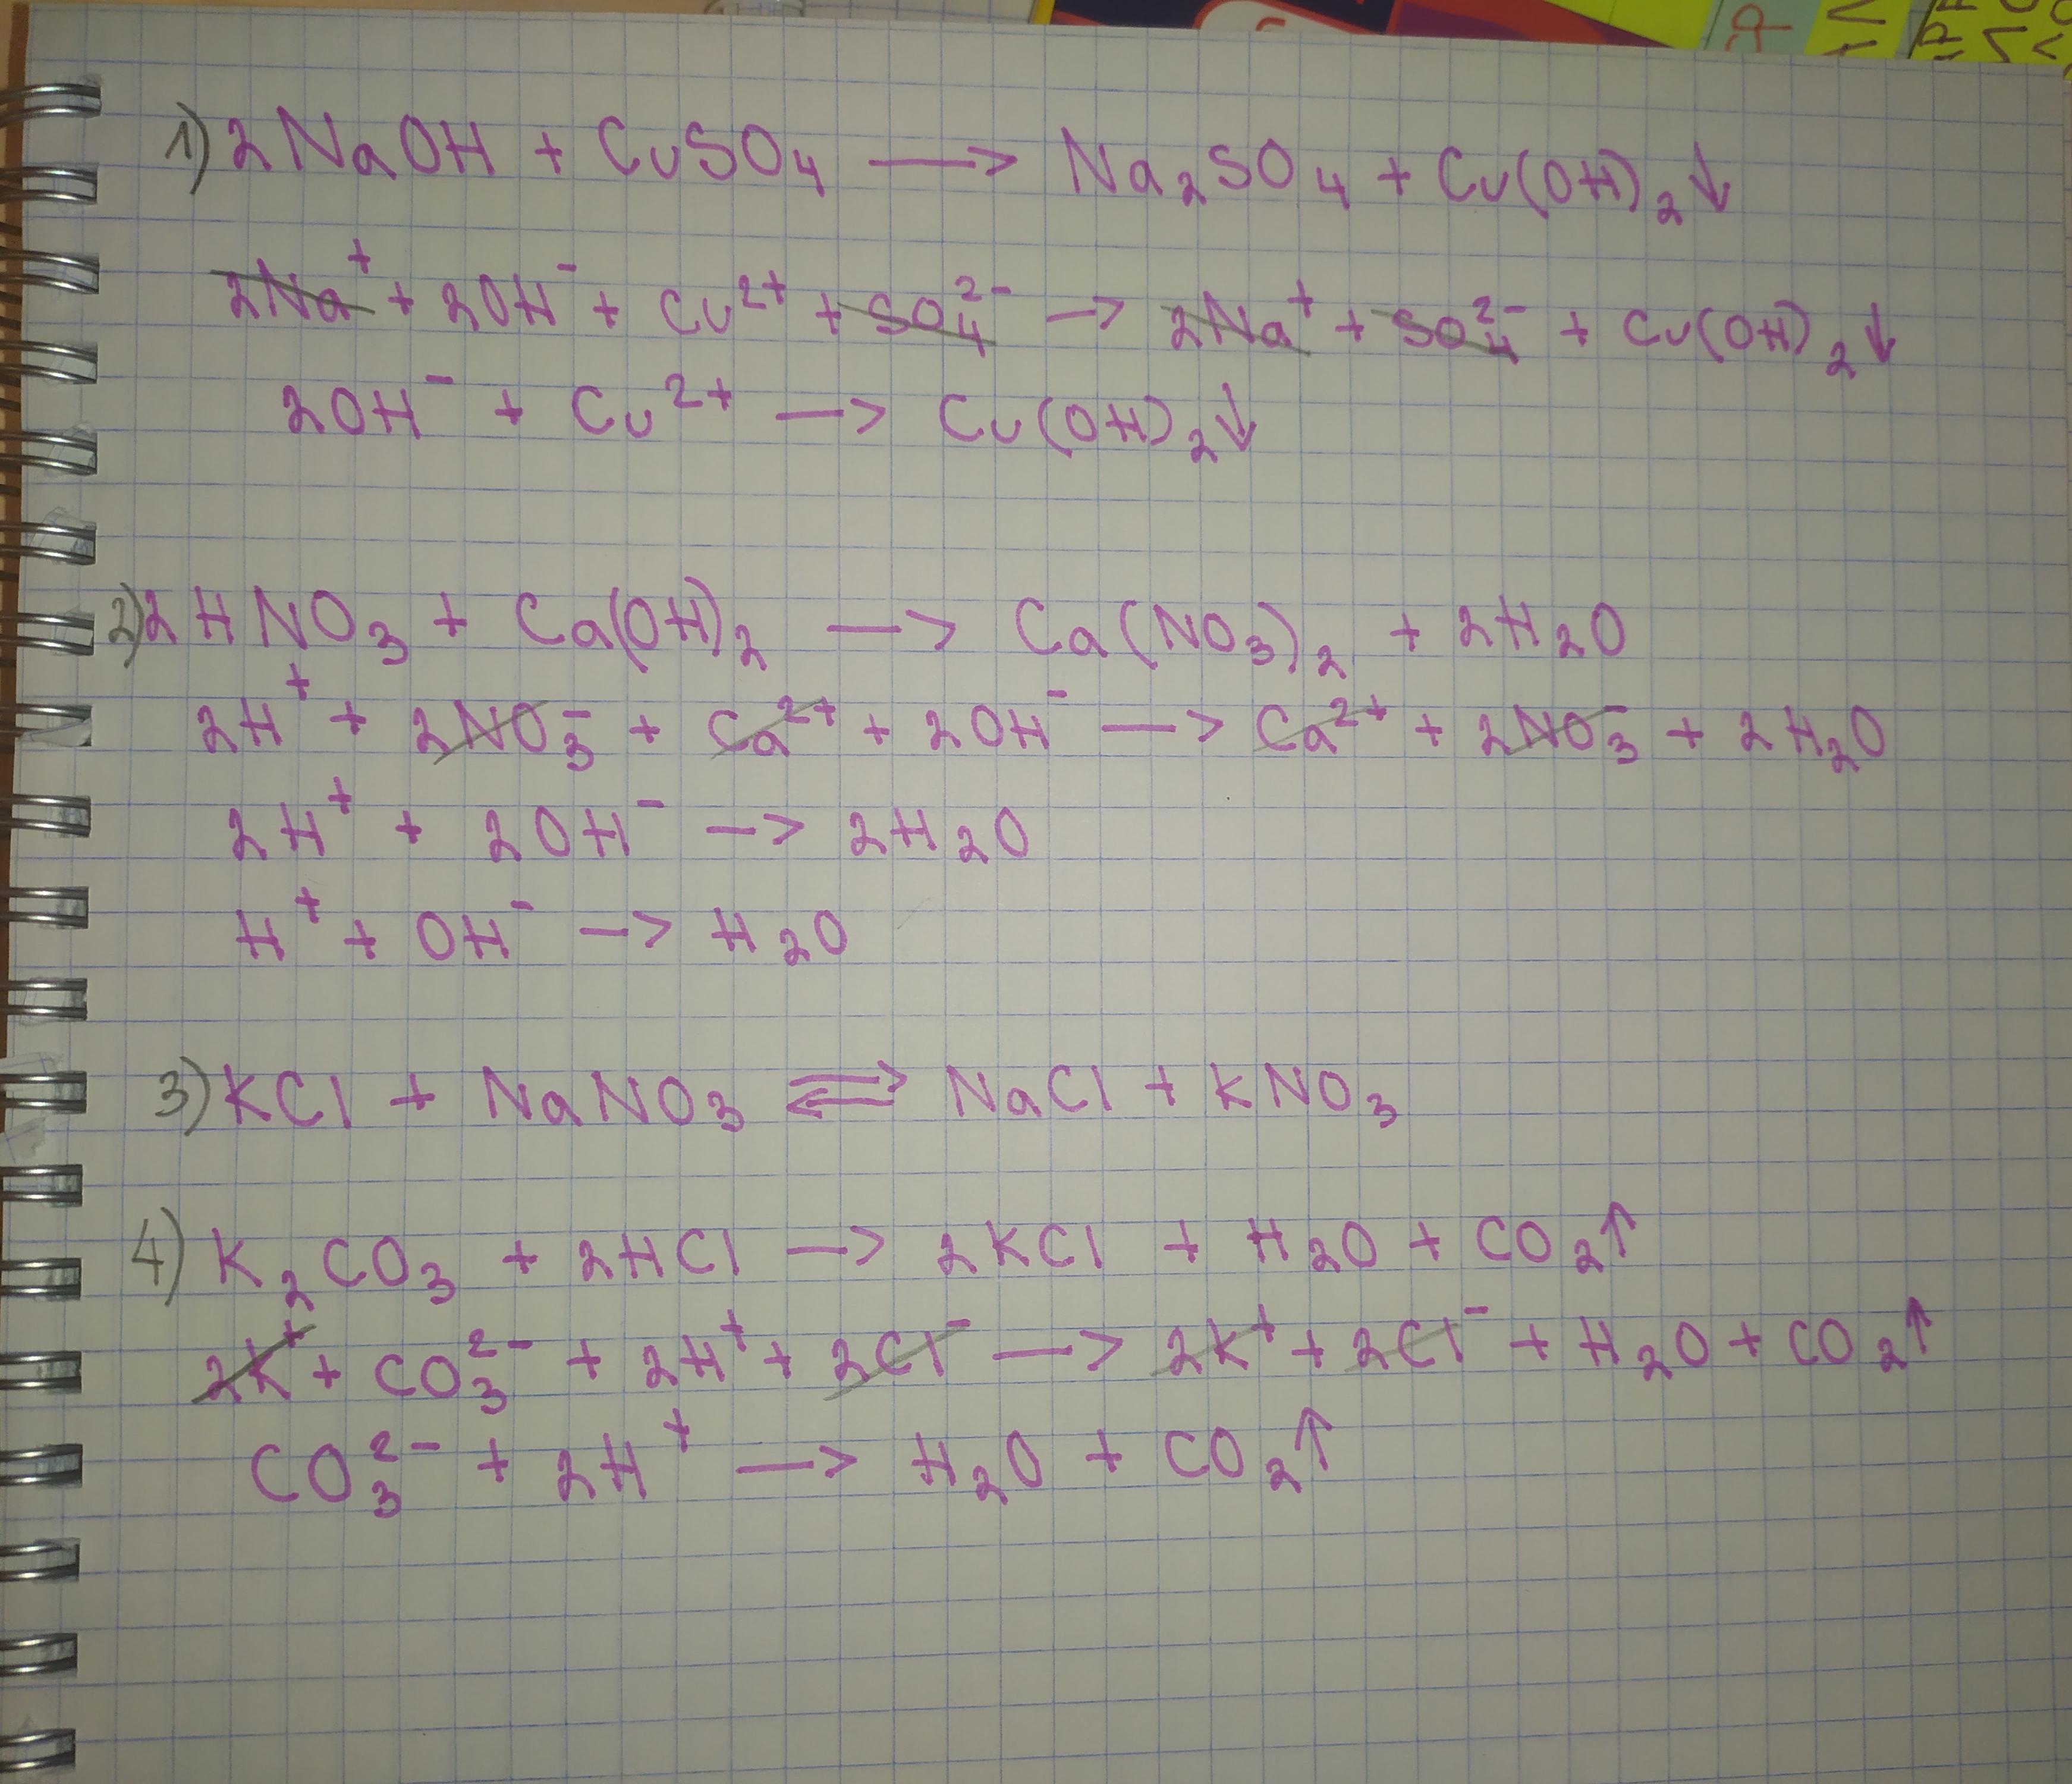 1) 2NaOH + CuSO₄ ⟶ Na₂SO₄ + Cu(OH)₂↓
2Na⁺ + 2OH⁻ + Cu²⁺ + SO₄²⁻ → 2Na⁺ + SO₄²⁻ + Cu(OH)₂↓
2OH⁻ + Cu²⁺ → Cu(OH)₂↓
2) 2HNO₃ + Ca(OH)₂ → Ca(NO₃)₂ + 2H₂O
2H⁺ + 2NO₃⁻ + Ca²⁺ + 2OH⁻ → Ca²⁺ + 2NO₃⁻ + 2H₂O
2H⁺ + 2OH⁻ → 2H₂O
H⁺ + OH⁻ → H₂O
3) KCl + NaNO₃ ⇄ NaCl + KNO₃
4) K₂CO₃ + 2HCl → 2KCl + H₂O + CO₂↑
2K⁺ + CO₃²⁻ + 2H⁺ + 2Cl⁻ → 2K⁺ + 2Cl⁻ + H₂O + CO₂↑
CO₃²⁻ + 2H⁺ → H₂O + CO₂↑